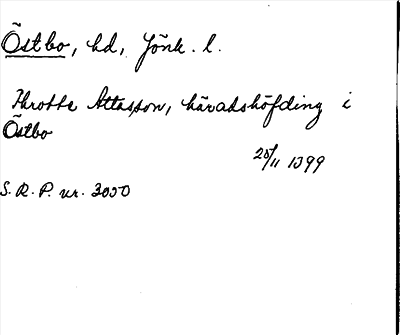 Östbo, hd, Jönk. l.
Throtte Attasson, häradshöfding i
Östbo
20/11 1399
S. R. P. nr. 3000